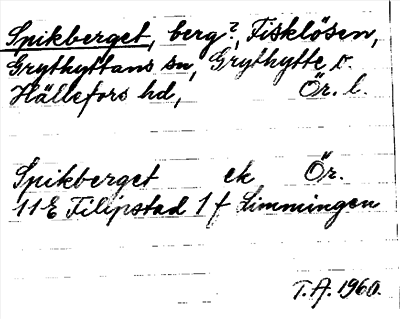 Spikberget, berg?, Fisklösen,
Grythyttans sn, Grythytte o.
Hällefors hd, Ör. l.
Spikberget ek Ör.
11E Filipstad 1 f Limmingen
T.A. 1960.